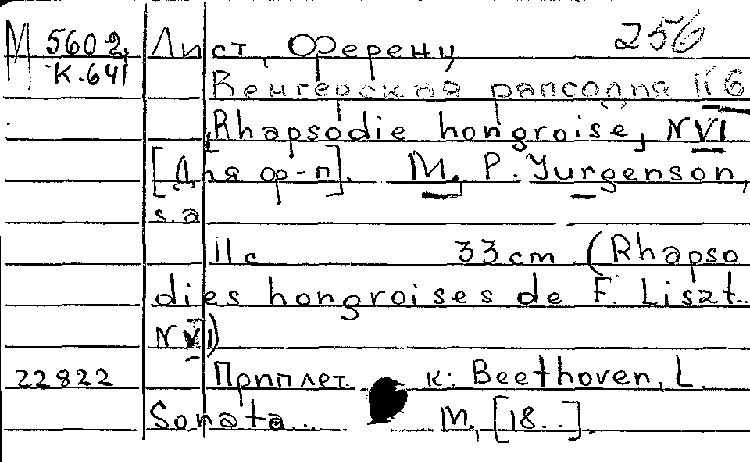 М 5602 Лист, Ференц 256
К.641 Венгерская рапсодия № 6
Rhapsodie hongroise, N VI
[Для ф-п]. М., P. Jurgenson,
s.a
11 с 33 cm (Rhapso
dies hongroises de F. Liszt.
N VI)
22822 Приплет. к: Beethoven, L.
Sonata... М., [18..].